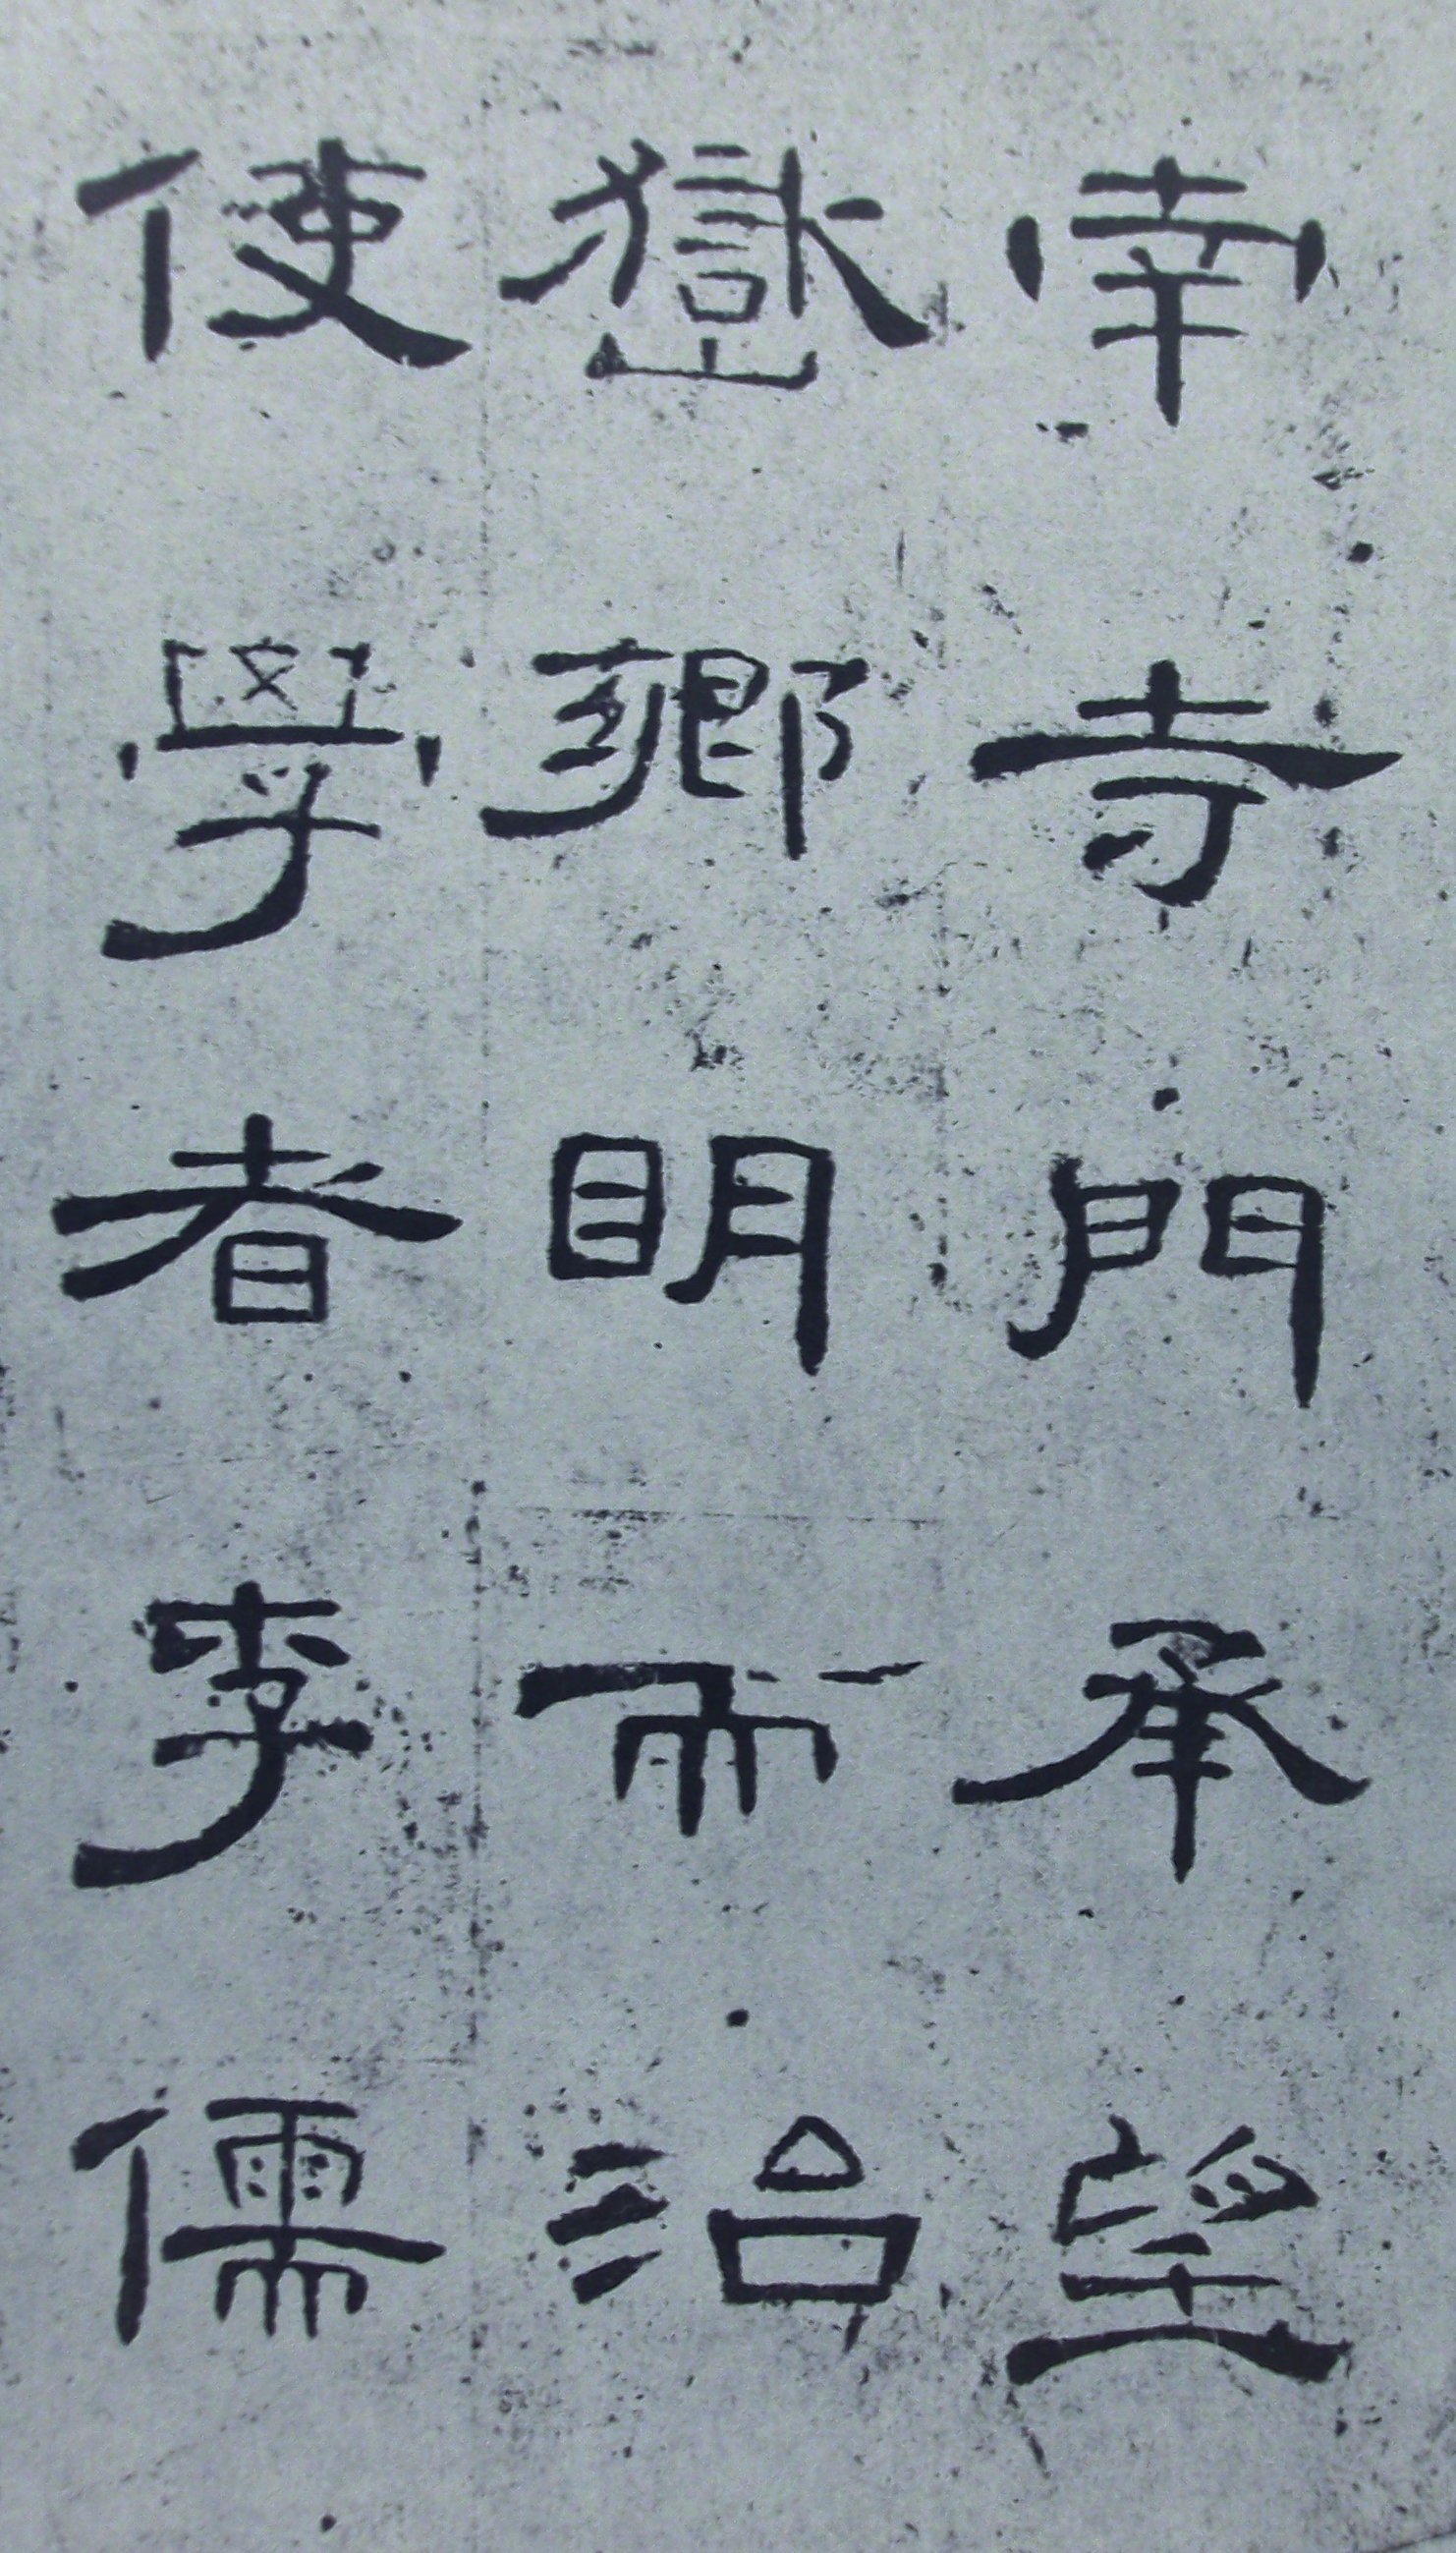 幸寺門承望
嶽鄉明而治
使學者李儒